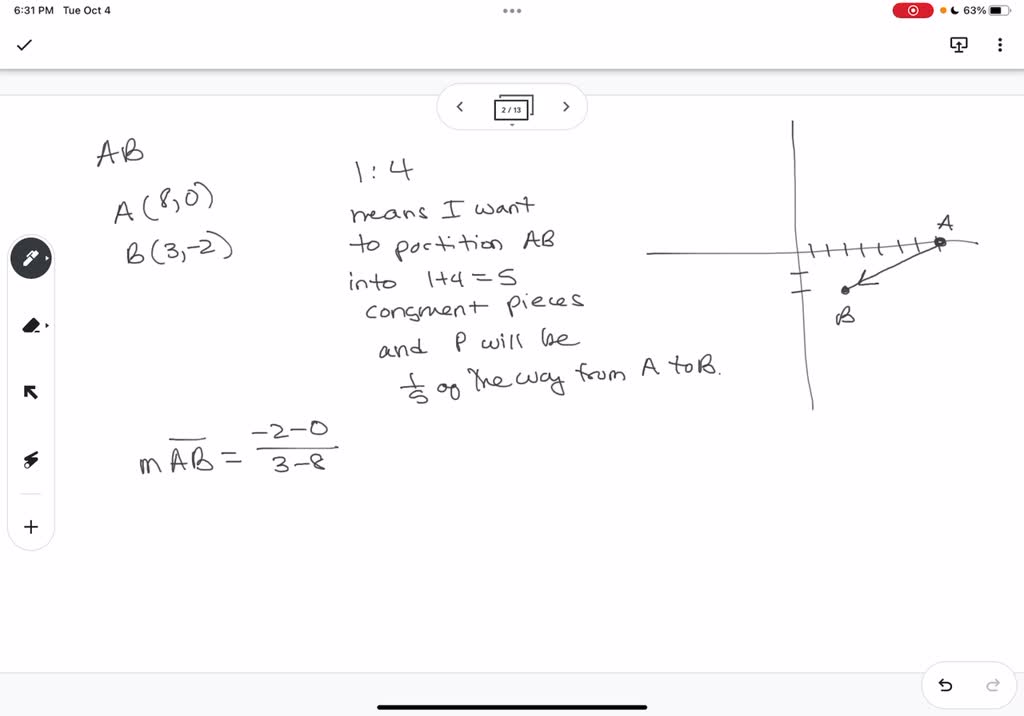 6:31 PM Tue Oct 4
63%
2 / 13
AB
A (8,0)
B (3,-2)
1:4
means I want
to partition AB
into 1+4=5
congruent pieces
and P will be
1/5 of the way from A to B.
m AB = -2-0 / 3-8
A
B